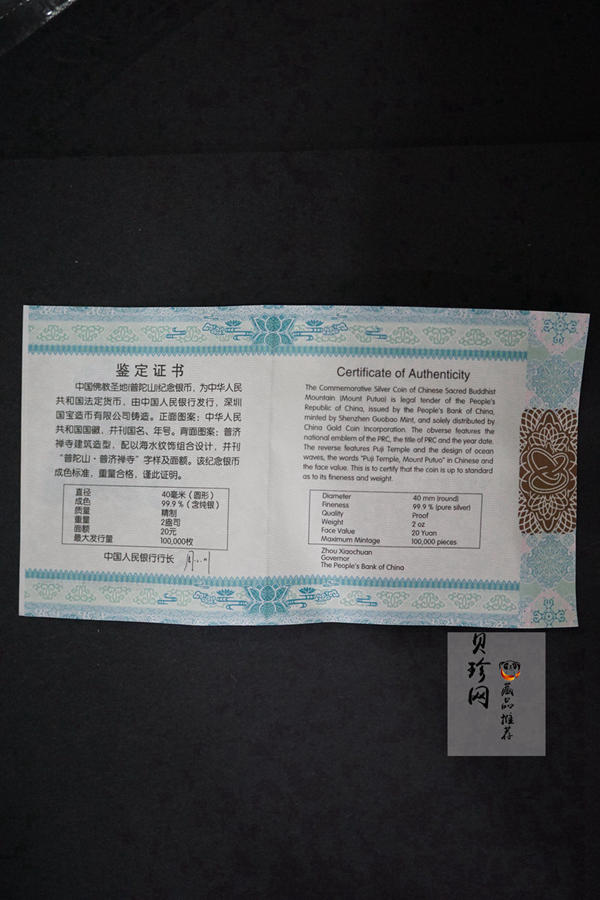 鉴定证书
中国佛教圣地(普陀山)纪念银币，为中华人民
共和国法定货币，由中国人民银行发行，深圳
国宝造币有限公司铸造。正面图案：中华人民
共和国国徽，并刊国名、年号。背面图案：普济
禅寺建筑造型，配以海水纹饰组合设计，并刊
“普陀山·普济禅寺”字样及面额。该纪念银币
成色标准，重量合格，谨此证明。
直径 40毫米（圆形）
成色 99.9％（含纯银）
质量 精制
重量 2盎司
面额 20元
最大发行量 100,000枚
中国人民银行行长
Certificate of Authenticity
The Commemorative Silver Coin of Chinese Sacred Buddhist
Mountain (Mount Putuo) is legal tender of the People's
Republic of China, issued by the People's Bank of China,
minted by Shenzhen Guobao Mint, and solely distributed by
China Gold Coin Incorporation. The obverse features the
national emblem of the PRC, the title of PRC and the year date.
The reverse features Puji Temple and the design of ocean
waves, the words "Puji Temple, Mount Putuo" in Chinese and
the face value. This is to certify that the coin is up to standard
as to its fineness and weight.
Diameter 40 mm (round)
Fineness 99.9 % (pure silver)
Quality Proof
Weight 2 oz
Face Value 20 Yuan
Maximum Mintage 100,000 pieces
Zhou Xiaochuan
Governor
The People's Bank of China
贝珍网
藏品推荐